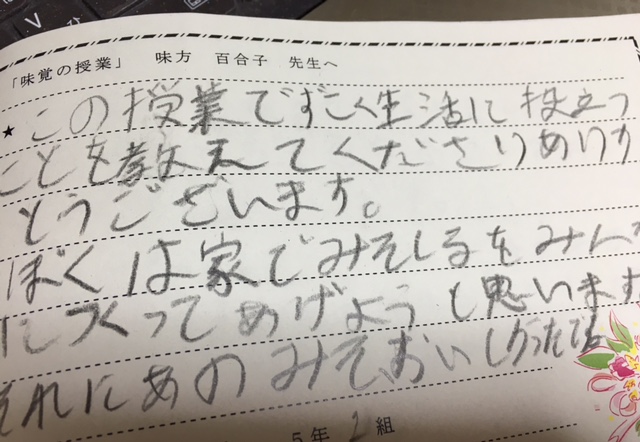 「味覚の授業」　味方　百合子　先生へ
★この授業ですごく生活に役立つ
ことを教えてくださりありが
とうございます。
ぼくは家でみそしるをみんな
につくってあげようと思います
それにあのみそおいしかったです
5年2組